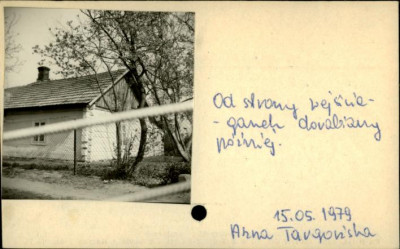 Od strony wejścia-
-ganek dorabiany
później.
15.05.1979
Anna Targońska